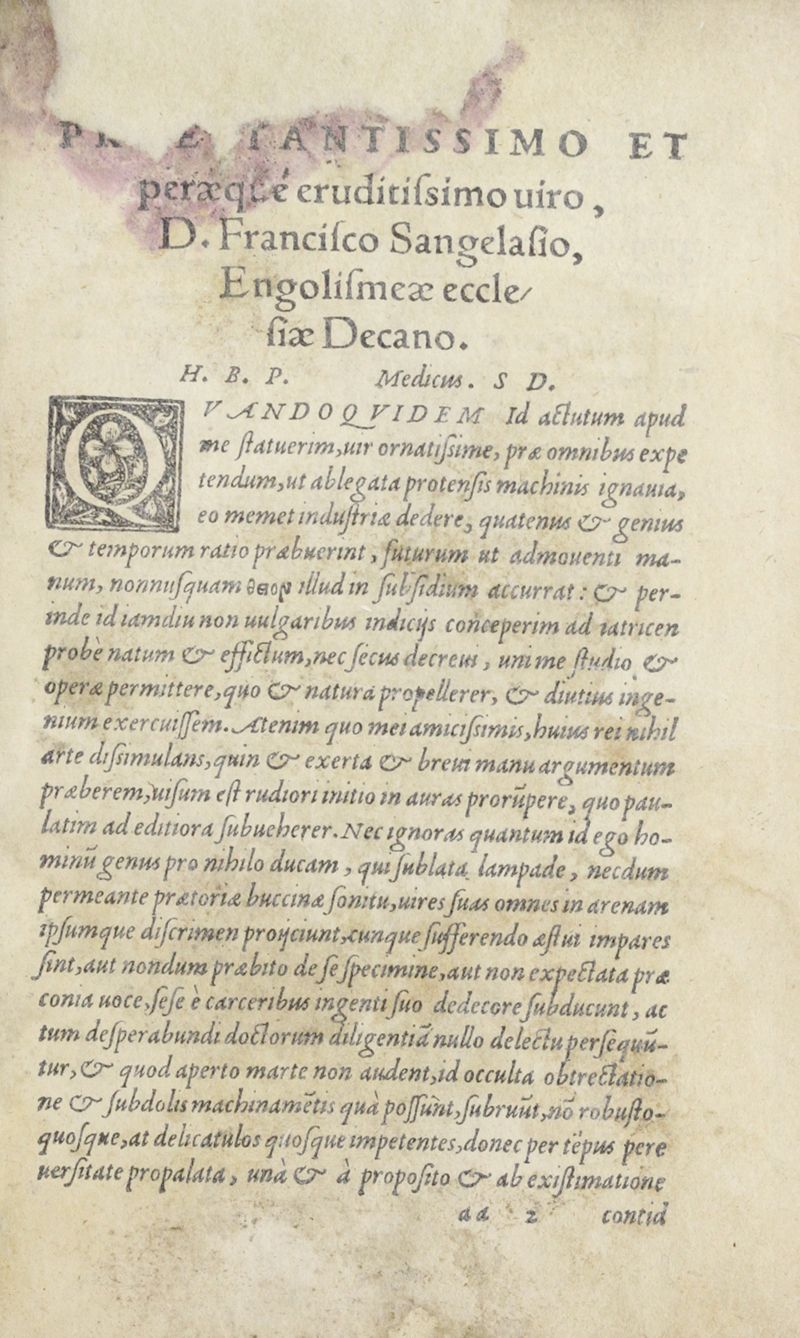 PRÆSTANTISSIMO ET
peræque eruditiſsimo uiro,
D. Franciſco Sangelaſio,
Engoliſmeæ eccle/
ſiæ Decano.
H. B. P. Medicus. S D.
QVANDOQVIDEM Id actutum apud
me ſtatuerim, uir ornatiſsime, præ omnibus expe
tendum, ut ablegata protenſis machinis ignauia,
eo memet induſtriæ dedere, quatenus & genius
& temporum ratio præbuerint, futurum ut admouenti ma-
num, nonnuſquam illud in ſubſidium accurrat: & per-
inde id iamdiu non uulgaribus indicijs conceperim ad iatricen
probè natum & effictum, nec ſecus decreui, uni me ſtudio &
operæ permittere, quo & natura propellerer, & diutius inge-
nium exercuiſſem. Atenim quo mei amiciſsimis, huius rei nihil
arte diſsimulans, quin & exerta & breui manu argumentum
præberem, uiſum eſt rudiori initio in auras prorūpere, quo pau-
latim ad editiora ſubueherer. Nec ignoras quantum id ego ho-
minū genus pro nihilo ducam, qui ſublata lampade, necdum
permeante prætoriæ buccinæ ſonitu, uires ſuas omnes in arenam
ipſumque diſcrimen proijciunt, cunque ſufferendo æſtui impares
ſint, aut nondum præbito de ſe ſpecimine, aut non expectata præ
conia uoce, ſeſe è carceribus ingenti ſuo dedecore ſubducunt, ac
tum deſperabundi doctorum diligentiā nullo delectu perſequū-
tur, & quod aperto marte non audent, id occulta obtrectatio-
ne & ſubdolis machinamētis quà poſſunt, ſubruūt, nō robuſto-
quoſque, at delicatulos quoſque impetentes, donec per tēpus pere
uerſitate propalata, unà & à propoſito & ab exiſtimatione
aa 2 contid